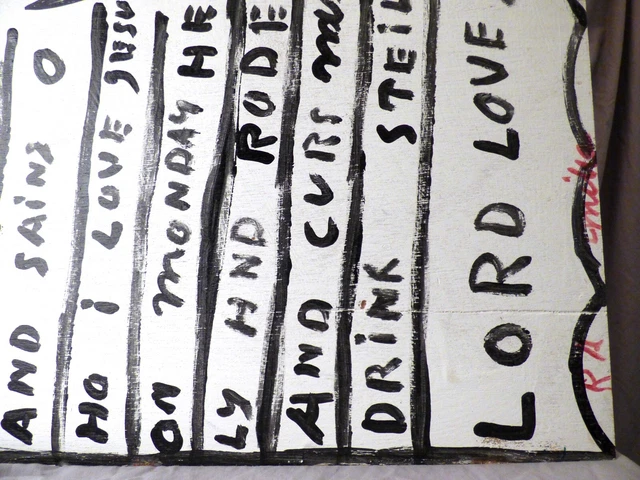 AND SAINS O
HO i LOVE JESU
ON MONDAY HE
LY HND RODE
AND CURS
DRINK STEIL
LORD LOVE
R A